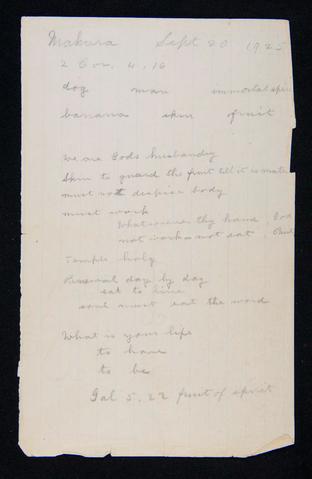 Makura Sept 20 1925
2 Cor. 4. 16
dog man immortal spir
banana skin fruit
We are Gods husbandry
Skin to guard the fruit till it is matu
must not despise body
must work
Whatsoever thy hand
not work not eat
Temple holy
Renewal day by day
eat to live
soul must eat the word
What is your life
to have
to be
Gal 5. 22 fruit of spirit